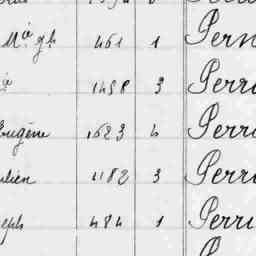 Mie gh 461 1 Pern
ie 1498 3 Perr
Eugène 1623 4 Perr
ulien 1182 3 Perr
eph 484 1 Perr